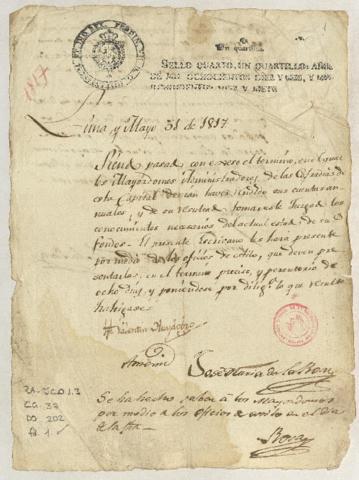 Un quartillo
SELLO QUARTO, UN QUARTILLO, AÑOS
DE MIL OCHOCIENTOS DIEZ Y SEIS, Y MIL
OCHOCIENTOS DIEZ Y SIETE
1817
1
Lima, y Mayo 31 de 1817.
Siendo pasado con exceso el termino, en el qual
los Mayordomos y Administradores de las Cofradias de
esta Capital devian haver rendido sus cuentas an-
nuales, y de su resulta tomar este Juzgado los
conocimientos necesarios del actual estado de sus
fondos. El presente Escribano les hará presente
por medio de los oficios de estilo, que deven pre-
sentarlas en el termino preciso, y perentorio de
ocho dias, y poniendose por dilig.a lo que resulte
traigase.
Antemi
Jose Maria de la Rosa
Se ha hecho saber á los Mayordomos
por medio de los oficios de estilo en el dia
de la fha.
Rosa
CO 1.3
CA: 37
DO 202